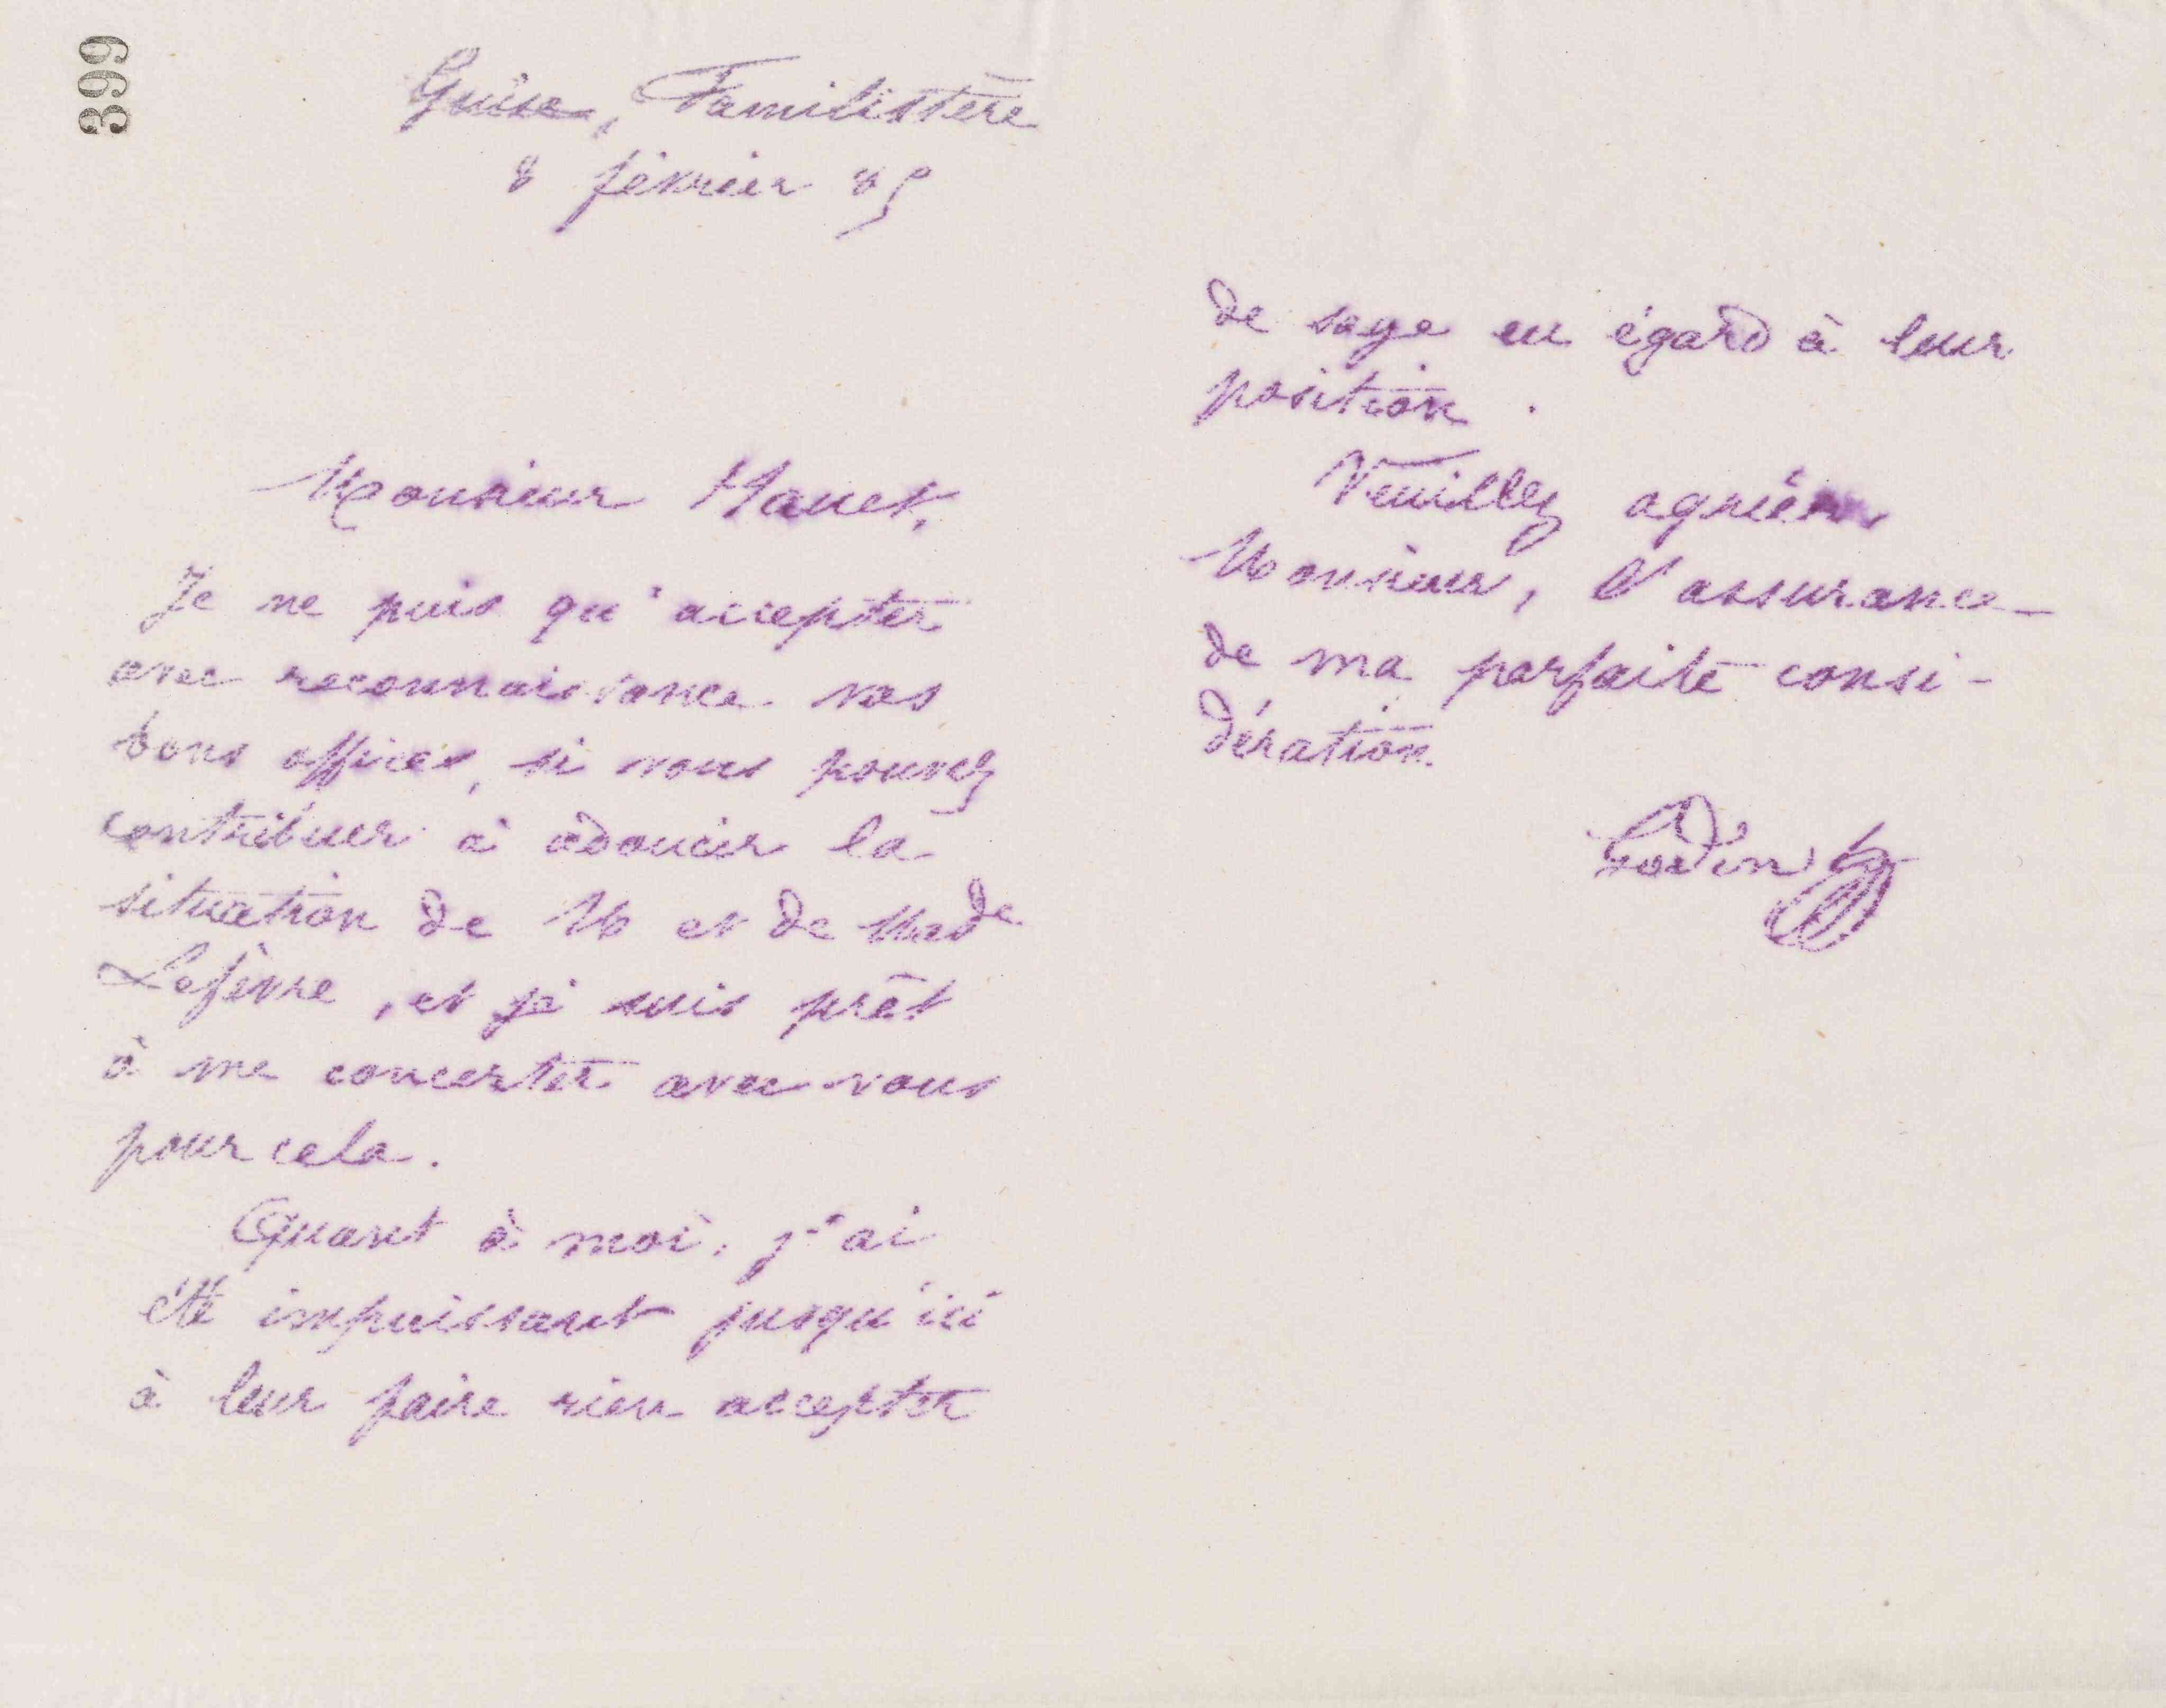 399
Guise, Familistère
8 février 85
Monsieur Hanet,
Je ne puis qu'accepter
avec reconnaissance vos
bons offices, si vous pouvez
contribuer à adoucir la
situation de M et de Made
Lefèvre, et je suis prêt
à me concerter avec vous
pour cela.
Quant à moi, j'ai
été impuissant jusqu'ici
à leur faire rien accepter
de sage eu égard à leur
position.
Veuillez agréer,
Monsieur, l'assurance
de ma parfaite consi-
dération.
Godin